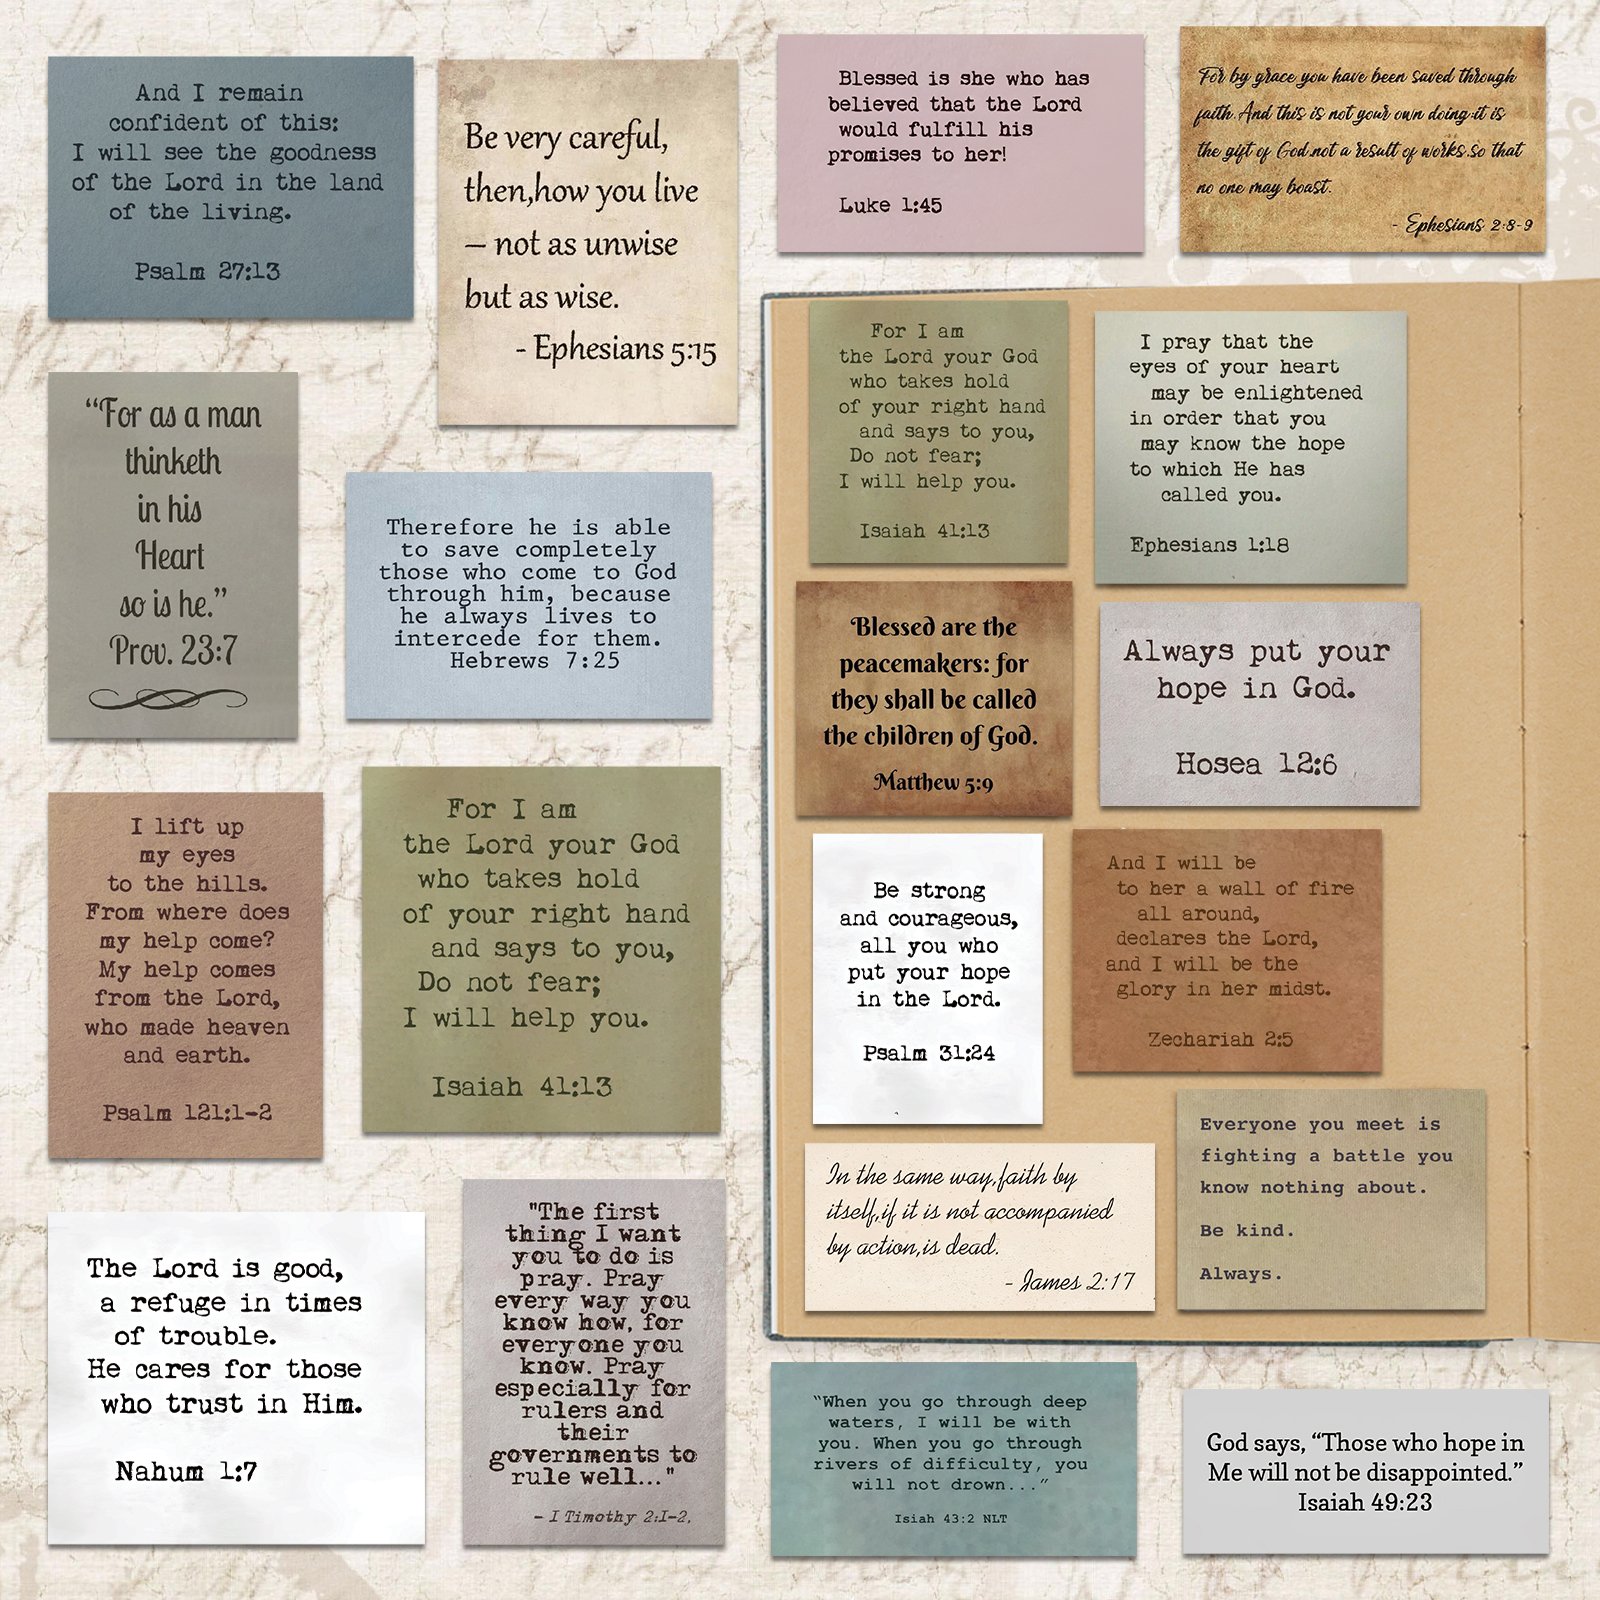 And I remain
confident of this:
I will see the goodness
of the Lord in the land
of the living.
Psalm 27:13
Be very careful,
then,how you live
– not as unwise
but as wise.
- Ephesians 5:15
Blessed is she who has
believed that the Lord
would fulfill his
promises to her!
Luke 1:45
For by grace you have been saved through
faith.And this is not your own doing:it is
the gift of God.not a result of works.so that
no one may boast.
- Ephesians 2:8-9
“For as a man
thinketh
in his
Heart
so is he.”
Prov. 23:7
Therefore he is able
to save completely
those who come to God
through him, because
he always lives to
intercede for them.
Hebrews 7:25
For I am
the Lord your God
who takes hold
of your right hand
and says to you,
Do not fear;
I will help you.
Isaiah 41:13
I pray that the
eyes of your heart
may be enlightened
in order that you
may know the hope
to which He has
called you.
Ephesians 1:18
Blessed are the
peacemakers: for
they shall be called
the children of God.
Matthew 5:9
Always put your
hope in God.
Hosea 12:6
I lift up
my eyes
to the hills.
From where does
my help come?
My help comes
from the Lord,
who made heaven
and earth.
Psalm 121:1-2
For I am
the Lord your God
who takes hold
of your right hand
and says to you,
Do not fear;
I will help you.
Isaiah 41:13
Be strong
and courageous,
all you who
put your hope
in the Lord.
Psalm 31:24
And I will be
to her a wall of fire
all around,
declares the Lord,
and I will be the
glory in her midst.
Zechariah 2:5
In the same way,faith by
itself,if it is not accompanied
by action,is dead.
- James 2:17
Everyone you meet is
fighting a battle you
know nothing about.
Be kind.
Always.
The Lord is good,
a refuge in times
of trouble.
He cares for those
who trust in Him.
Nahum 1:7
"The first
thing I want
you to do is
pray. Pray
every way you
know how, for
everyone you
know. Pray
especially for
rulers and
their
governments to
rule well..."
- I Timothy 2:1-2.
“When you go through deep
waters, I will be with
you. When you go through
rivers of difficulty, you
will not drown...”
Isiah 43:2 NLT
God says, “Those who hope in
Me will not be disappointed.”
Isaiah 49:23